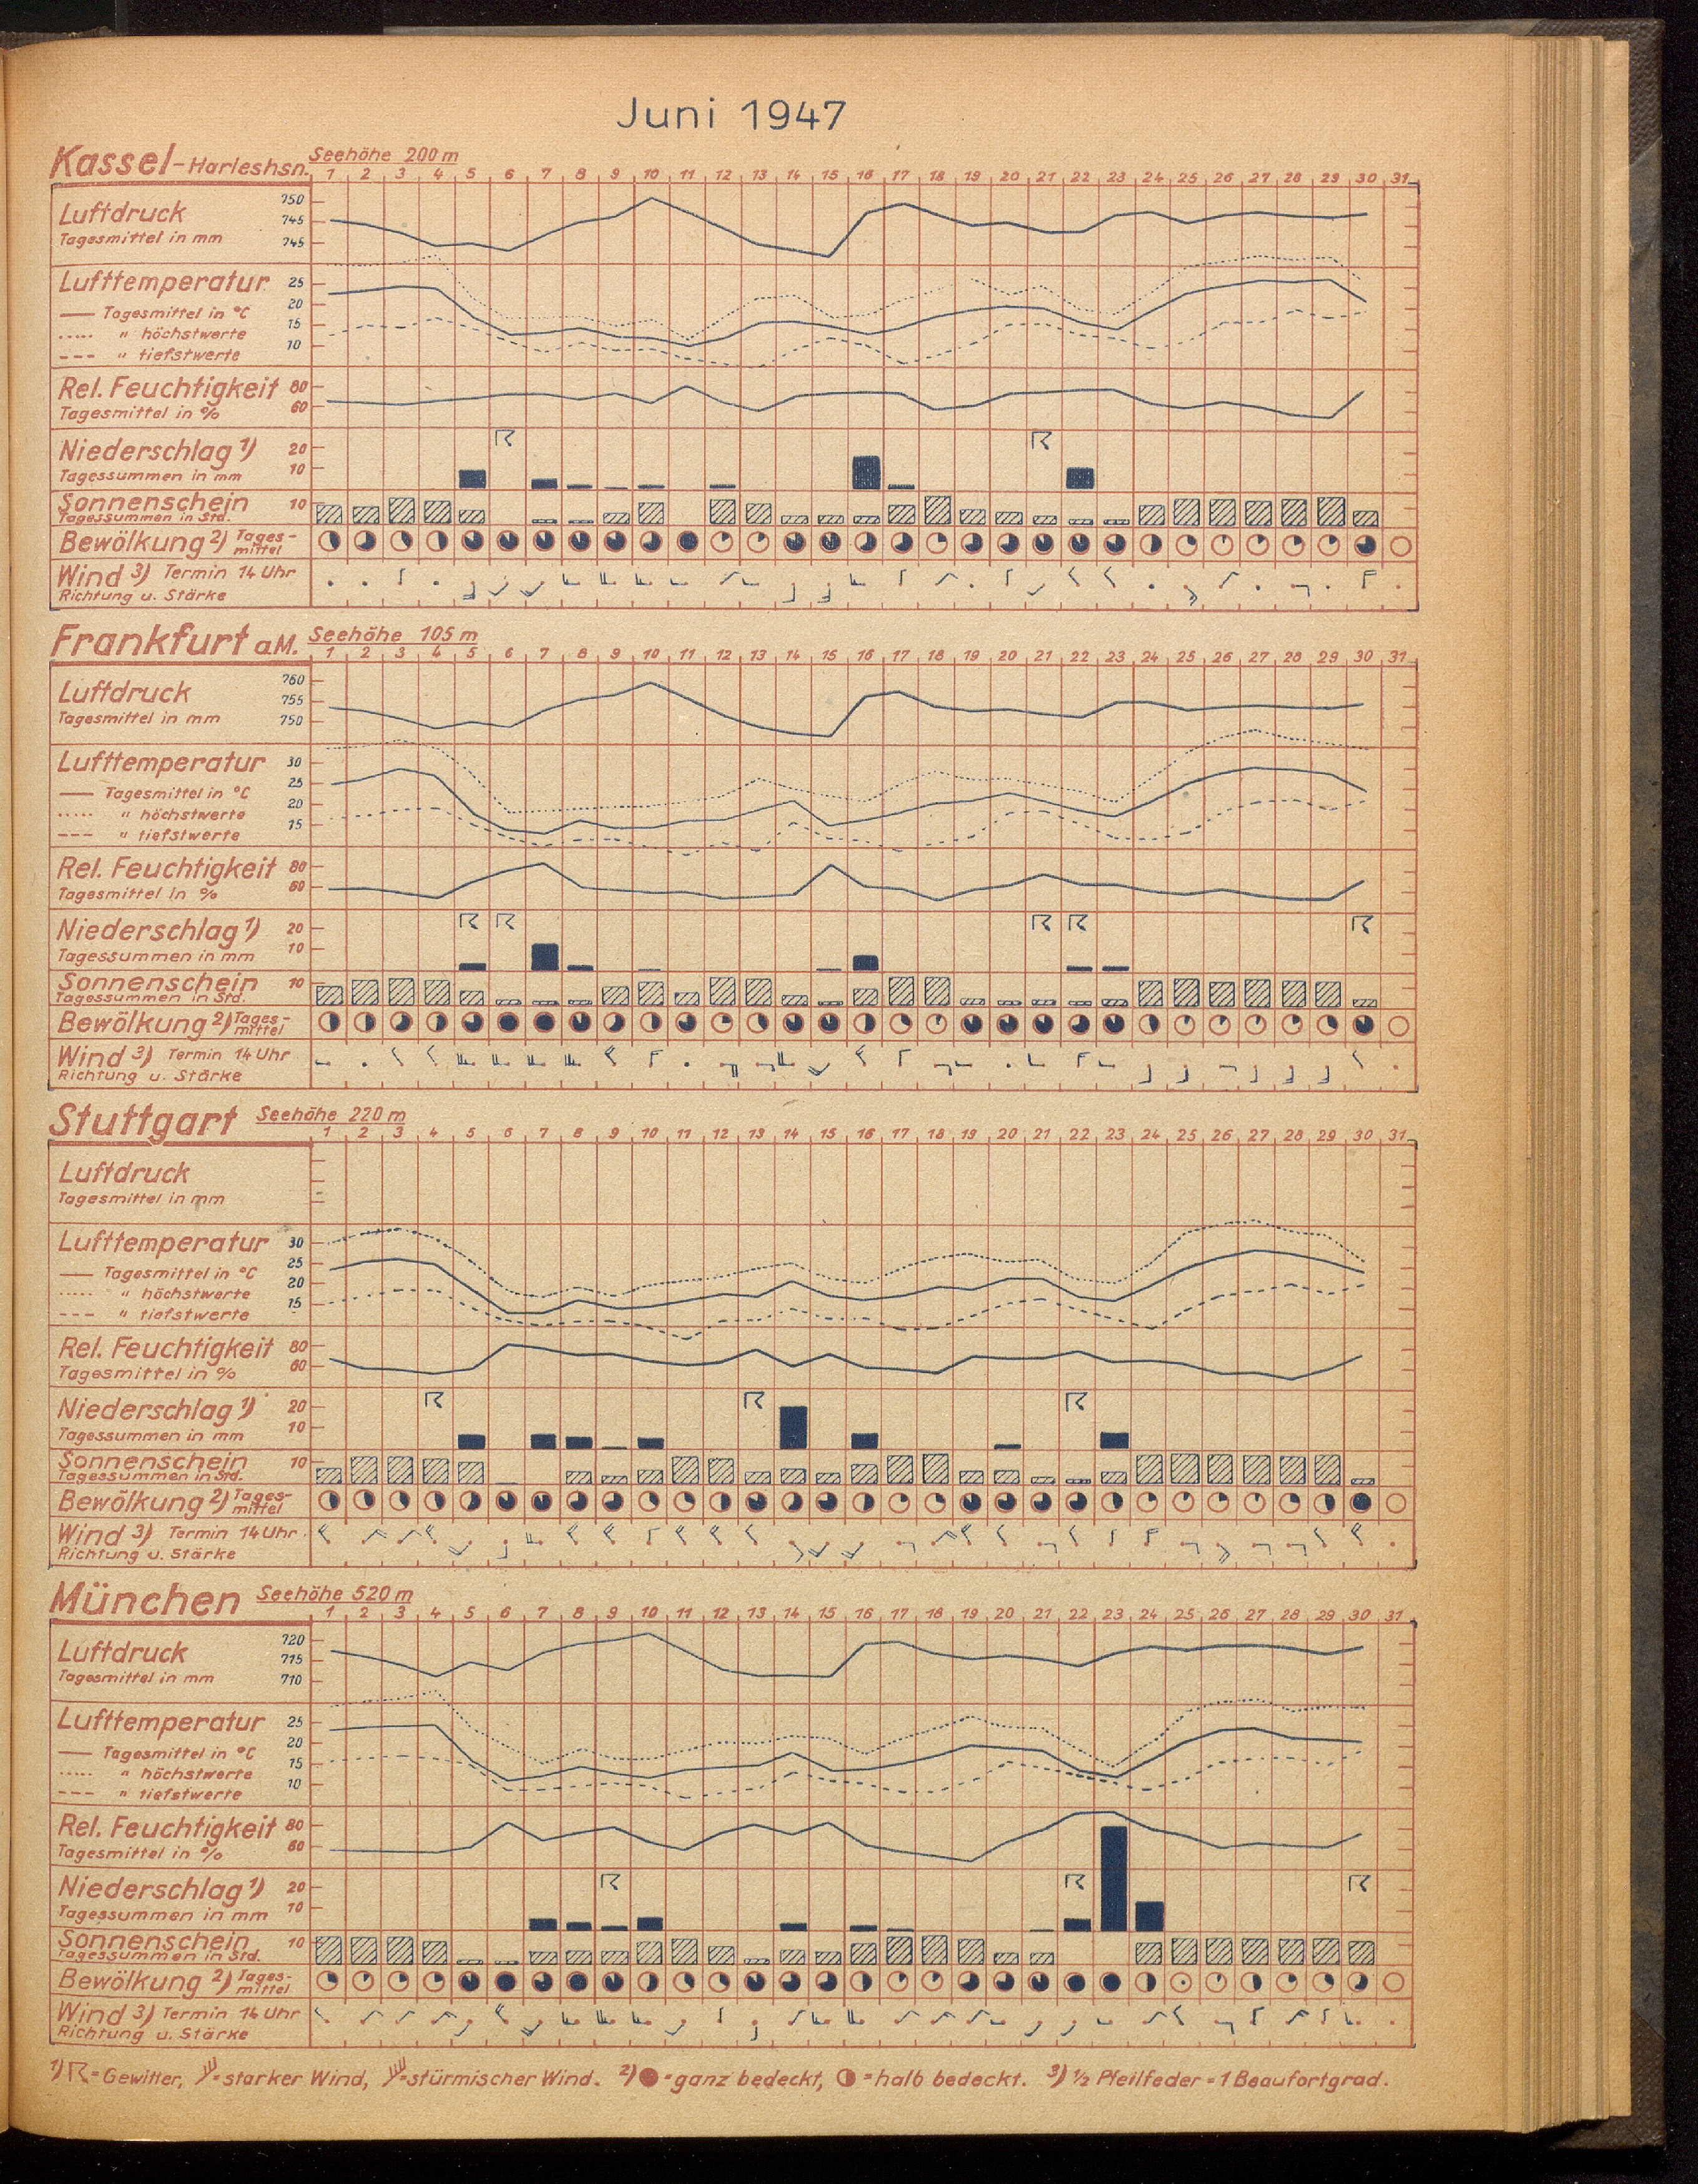 Juni 1947
Kassel-Harleshsn. Seehöhe 200 m
1 2 3 4 5 6 7 8 9 10 11 12 13 14 15 16 17 18 19 20 21 22 23 24 25 26 27 28 29 30 31
Luftdruck 750
745
Tagesmittel in mm 745
Lufttemperatur 25
20
Tagesmittel in °C
15
" höchstwerte
10
" tiefstwerte
Rel. Feuchtigkeit 80
Tagesmittel in % 60
Niederschlag 1) 20
Tagessummen in mm 10
Sonnenschein 10
Tagessummen in Std.
Bewölkung 2) Tages-
mittel
Wind 3) Termin 14 Uhr
Richtung u. Stärke
Frankfurt a.M. Seehöhe 105 m
1 2 3 4 5 6 7 8 9 10 11 12 13 14 15 16 17 18 19 20 21 22 23 24 25 26 27 28 29 30 31
760
Luftdruck 755
Tagesmittel in mm 750
Lufttemperatur 30
25
Tagesmittel in °C
20
" höchstwerte
15
" tiefstwerte
Rel. Feuchtigkeit 80
Tagesmittel in % 60
Niederschlag 1) 20
Tagessummen in mm 10
Sonnenschein 10
Tagessummen in Std.
Bewölkung 2) Tages-
mittel
Wind 3) Termin 14 Uhr
Richtung u. Stärke
Stuttgart Seehöhe 220 m
1 2 3 4 5 6 7 8 9 10 11 12 13 14 15 16 17 18 19 20 21 22 23 24 25 26 27 28 29 30 31
Luftdruck
Tagesmittel in mm
Lufttemperatur 30
25
Tagesmittel in °C
20
" höchstwerte
15
" tiefstwerte
Rel. Feuchtigkeit 80
Tagesmittel in % 60
Niederschlag 1) 20
Tagessummen in mm 10
Sonnenschein 10
Tagessummen in Std.
Bewölkung 2) Tages-
mittel
Wind 3) Termin 14 Uhr
Richtung u. Stärke
München Seehöhe 520 m
1 2 3 4 5 6 7 8 9 10 11 12 13 14 15 16 17 18 19 20 21 22 23 24 25 26 27 28 29 30 31
720
Luftdruck 715
Tagesmittel in mm 710
Lufttemperatur 25
20
Tagesmittel in °C
15
" höchstwerte
10
" tiefstwerte
Rel. Feuchtigkeit 80
Tagesmittel in % 60
Niederschlag 1) 20
Tagessummen in mm 10
Sonnenschein 10
Tagessummen in Std.
Bewölkung 2) Tages-
mittel
Wind 3) Termin 14 Uhr
Richtung u. Stärke
1) = Gewitter, = starker Wind, = stürmischer Wind. 2) = ganz bedeckt, = halb bedeckt. 3) ½ Pfeilfeder = 1 Beaufortgrad.